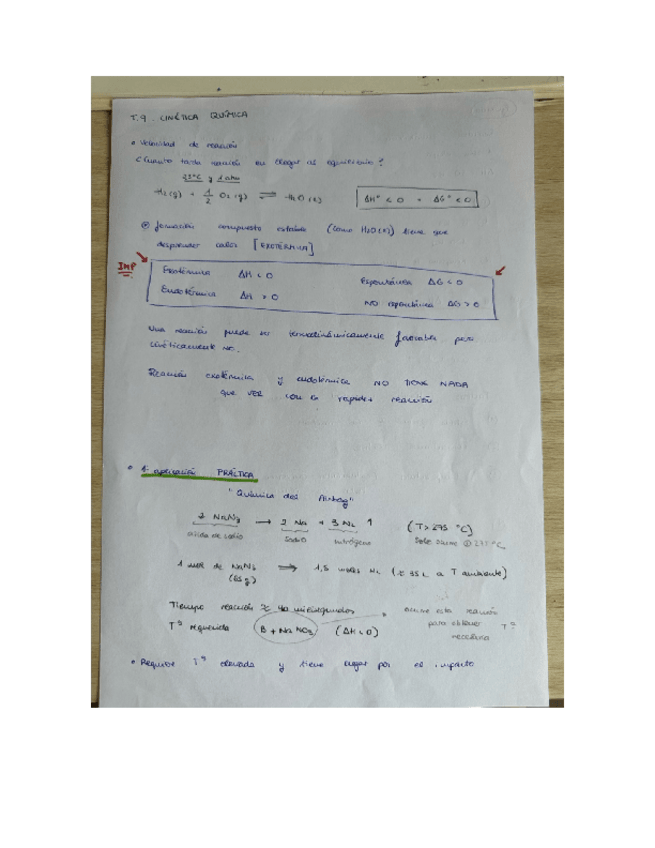 T.9. CINÉTICA QUÍMICA
• Velocidad de reacción
¿Cuánto tarda reacción en llegar al equilibrio?
25ºC y 1 atm
H₂(g) + 1/2 O₂(g) ⇌ H₂O(l) ΔHº < 0 ΔGº < 0
formación compuesto estable (como H₂O(l)) tiene que
desprender calor [EXOTÉRMICA]
IMP
Exotérmica ΔH < 0 Espontánea ΔG < 0
Endotérmica ΔH > 0 NO espontánea ΔG > 0
Una reacción puede ser termodinámicamente favorable pero
cinéticamente no.
Reacción exotérmica y endotérmica NO TIENE NADA
que VER con la rapidez reacción
• aplicación PRÁCTICA
"Química del Airbag"
2 NaN₃ → 2 Na + 3 N₂ ↑ (T > 275 ºC)
azida de sodio Sodio nitrógeno Sólo ocurre @ 275 ºC
1 mol de NaN₃ ⇒ 1,5 moles N₂ (≈ 35 L a T ambiente)
(65 g)
Tiempo reacción ≈ 40 milisegundos ocurre esta reacción
Tª requerida B + NaNO₃ (ΔH < 0) para obtener Tª
necesaria
• Requiere Tª elevada y tiene lugar por el impacto